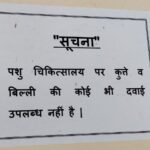 "सूचना"
पशु चिकित्सालय पर कुते व
बिल्ली की कोई भी दवाई
उपलब्ध नहीं है |